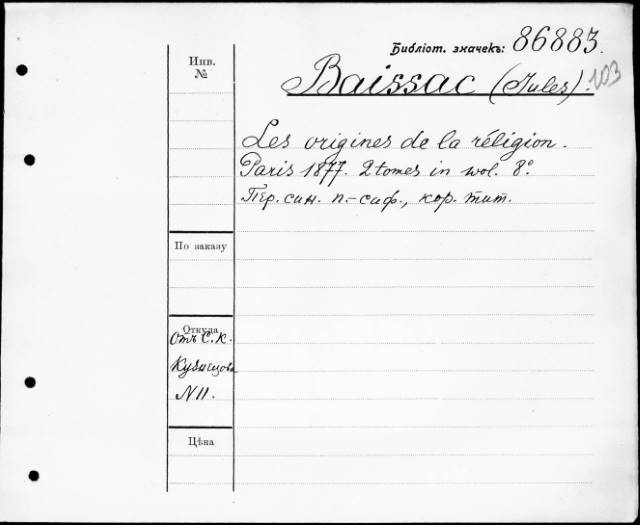 Библіот. значекъ: 86883.
103
Инв.
№
Baissac (Jules).
Les origines de la réligion.
Paris 1877. 2 tomes in vol. 8º.
Пер. син. п.-саф., кор. тит.
По заказу
Откуда
Отъ С. К.
Кузнецова
N 11.
Цѣна